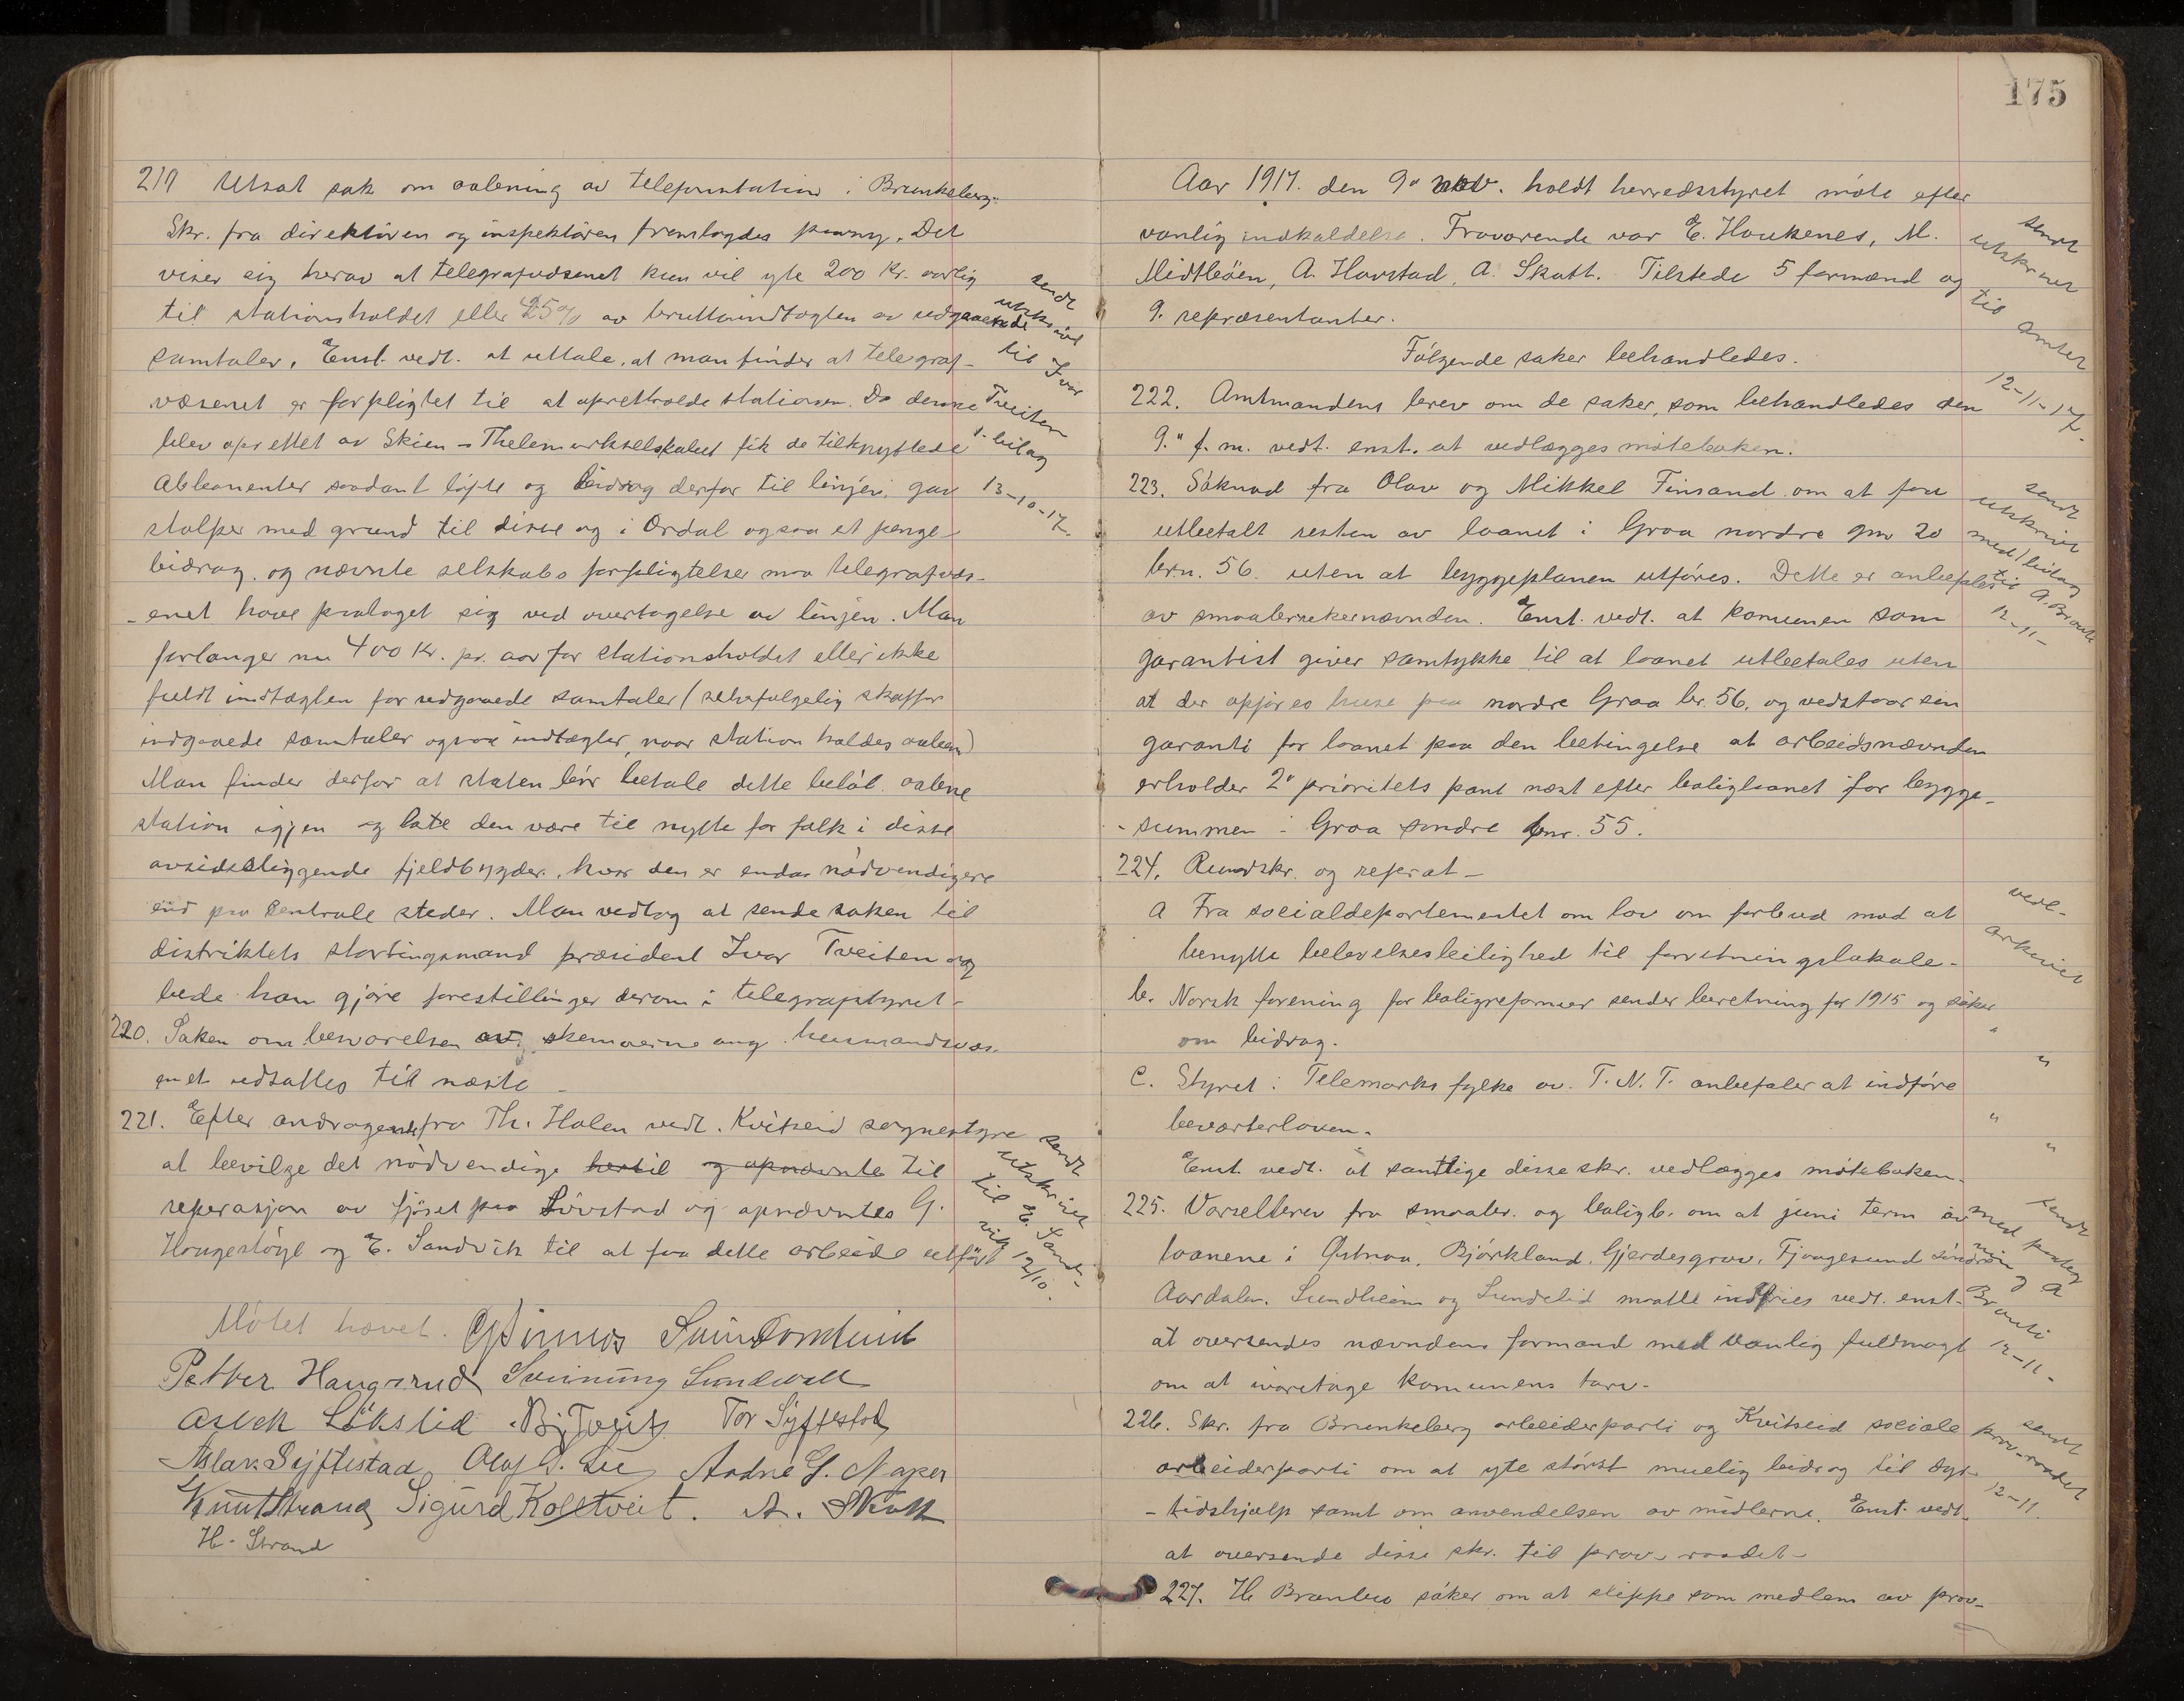 219 Utsat sak om aalening av telefonstation i Brunkeberg.
Skr. fra direktören og inspektören fremlagdes paany. Det
viser sig herav at telegrafvæsenet kun vil yte 200 kr. aarlig
til stationsholdet eller 25% av bruttoindtægten av udgaaende
samtaler. Enst. vedt. at uttale, at man finder at telegraf-
væsenet er forpligtet til at opretholde stationen. Da denne
blev oprettet av Skien-Thelemarkselskabet fik de tilknyttede
Abbonenter saadant löfte og bidrog derfor til linjen, gav
stolper med grund til disse og i Ordal ogsaa et penge-
bidrag, og nævnte selskabs forpligtelser maa telegrafvæs-
-enet have paataget sig ved overtagelse av linjen. Man
forlanger nu 400 Kr. pr. aar for stationsholdet eller ikke
fuldt indtægten for udgaaede samtaler (selvfølgelig skaffer
indgaaede samtaler ogsaa indtægter, naar station holdes aaben)
Man finder derfor at staten bör betale dette belöb aabne
station igjen og late den være til nytte for folk i disse
avsidesliggende fjeldbygder, hvor den er endaa nödvendigere
end paa centrale steder. Man vedtog at sende saken til
distriktets stortingsmand præsident Ivar Tveiten og
bede han gjöre forestillinger derom i telegrafstyret-
sendt
utskrivt
til Ivar
Tveiten
1. bilag
13-10-17.
220. Saken om besvarelsen av skemaerne ang. husmandsvæs-
enet udsattes til næste -
221. Efter andragende fra Th. Holen vedt. Kvitseid sognestyre
at bevilge det nödvendige hertil og opnævnte til
reparasjon av fjöset paa Lövstad og opnævntes G.
Haugestöyl og E. Sandvik til at faa dette arbeide utfört
sendt
utskrivt
til E. Sand-
vik 12/10.
Mötet hævet.
Petter Haugerud Sveinung Lundevall
Aslek Lökslid B. Tveit Tor Syftestad
Aslak Syftestad Olaf G. Lie Andne G. Naper
Knut Strand Sigurd Kolstveit. A. Skott
H. Strand
175
Aar 1917. den 9" nov. holdt herredsstyret möte efter
vanlig indkaldelse. Fraværende var E. Haukenes, M.
Midtböen, A. Havstad, A. Skott. Tilstede 5 formænd og
9. repræsentanter.
Følgende saker behandledes.
sendt
utskrivt
til
amtet
12-11-17.
222. Amtmandens brev om de saker, som behandledes den
9." f. m. vedt. enst. at vedlægges mötebøken.
223. Söknad fra Olav og Mikkel Finsand om at faa
utbetalt resten av laanet i Graa nordre gnr 20
br.n. 56. uten at byggeplanen utføres. Dette er anbefalet
av smaabrukernævnden. Enst. vedt. at komunen som
garantist giver samtykke til at laanet utbetales uten
at der opføres huse paa nordre Graa br. 56. og vedstaar sin
garanti for laanet paa den betingelse at arbeidsnævnden
erholder 2" prioritets pant næst efter boliglaanet for bygge-
-summen i Graa söndre bnr. 55.
sendt
utskrivt
med bilag
til A. Braute
12-11-
224. Rundskr. og referat -
a Fra socialdepartementet om lov om forbud mod at
benytte bebyelsesleilighed til forretningslokale-
b. Norsk forening for boligreformer sender beretning for 1915 og söker
om bidrag.
c. Styret i Telemarks fylke av T. N. T. anbefaler at indføre
beværterloven.
Enst. vedt. at samtlige disse skr. vedlægges mötebøken.
vedl-
arkivet
"
"
"
"
225. Varselbrev fra smaabr. og boligb. om at juni term av
laanene i Østnaa, Björkland, Gjerdesgrav, Fjaagesund søndre
Aardalen, Sundheim og Sundelid maatte indfries vedt. enst-
at oversendes nævndens formand med vanlig fuldmagt
om at ivaretage komunens tarv-
sendt
med
A.
Braute
12-11-
226. Skr. fra Brunkeberg arbeiderparti og Kvitseid sociale
arbeiderparti om at yte størst muelig bidrag til dyr-
-tidshjælp samt om anvendelsen av midlerne. Enst. vedt.
at oversende disse skr. til prov-raadet-
sendt
prov-raadet
12-11.
227. H. Brænbu söker om at slippe som medlem av prov-